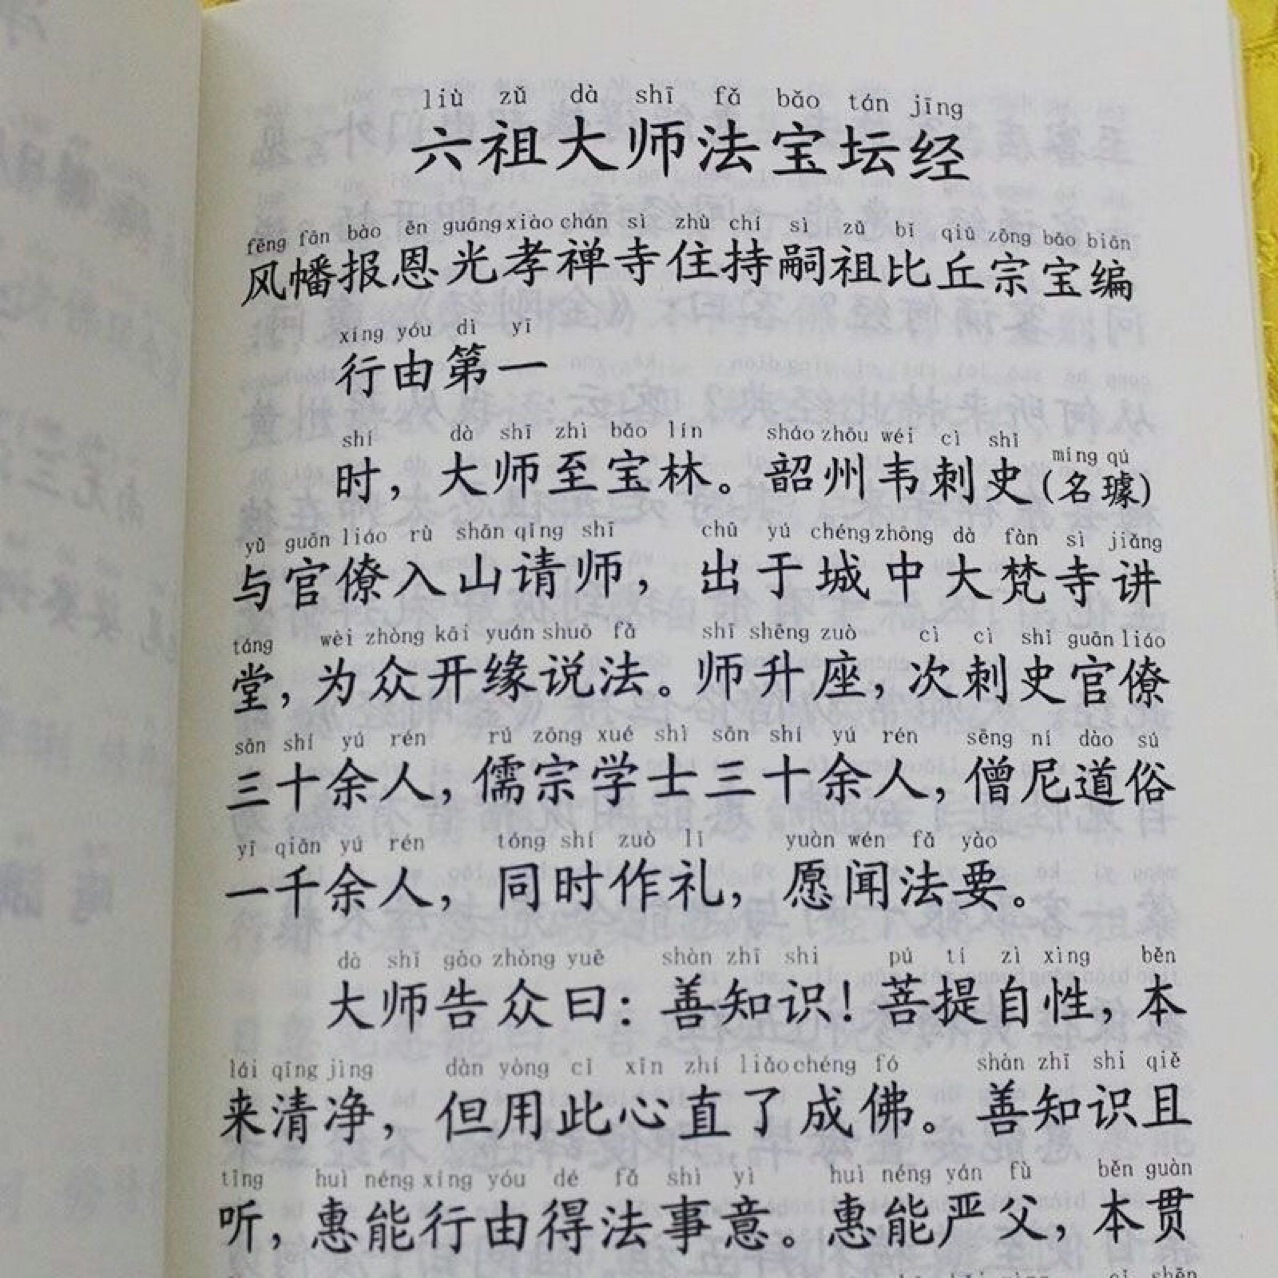 liù zǔ dà shī fǎ bǎo tán jīng
六祖大师法宝坛经
fēng fān bào ēn guāng xiào chán sì zhù chí sì zǔ bǐ qiū zōng bǎo biān
风幡报恩光孝禅寺住持嗣祖比丘宗宝编
xíng yóu dì yī
行由第一
shí dà shī zhì bǎo lín sháo zhōu wéi cì shǐ míng qú
时，大师至宝林。韶州韦刺史(名璩)
yǔ guān liáo rù shān qǐng shī chū yú chéng zhōng dà fàn sì jiǎng
与官僚入山请师，出于城中大梵寺讲
táng wèi zhòng kāi yuán shuō fǎ shī shēng zuò cì cì shǐ guān liáo
堂，为众开缘说法。师升座，次刺史官僚
sān shí yú rén rú zōng xué shì sān shí yú rén sēng ní dào sú
三十余人，儒宗学士三十余人，僧尼道俗
yī qiān yú rén tóng shí zuò lǐ yuàn wén fǎ yào
一千余人，同时作礼，愿闻法要。
dà shī gào zhòng yuē shàn zhī shi pú tí zì xìng běn
大师告众曰：善知识！菩提自性，本
lái qīng jìng dàn yòng cǐ xīn zhí liǎo chéng fó shàn zhī shi qiě
来清净，但用此心直了成佛。善知识且
tīng huì néng xíng yóu dé fǎ shì yì huì néng yán fù běn guàn
听，惠能行由得法事意。惠能严父，本贯